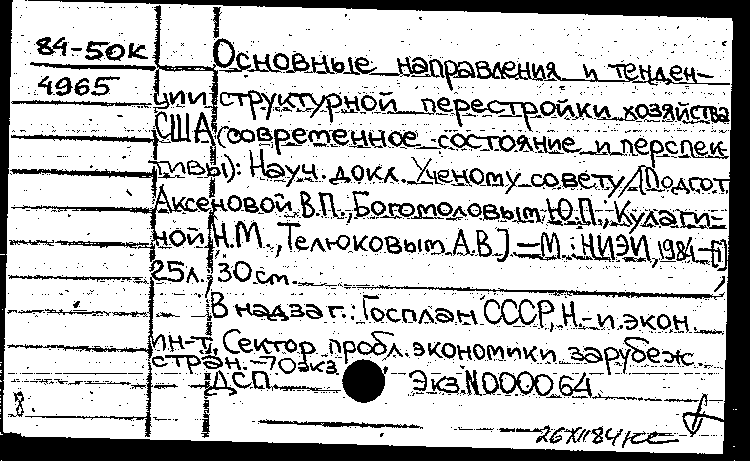 84-50к Основные направления и тенден-
4965
ции структурной перестройки хозяйства
США (современное состояние и перспек
тивы): Науч. докл. Ученому совету/[Подгот.
Аксеновой В.П., Богомоловым Ю.П., Кулаги-
ной Н.М., Телюковым А.В.].—М.: НИЭИ, 1984.—
25л., 30см.
В надзаг.: Госплан СССР, Н.-и. экон.
ин-т, Сектор пробл. экономики зарубеж.
стран.—70экз
ДСП. Экз.N000064
8.
26XII84